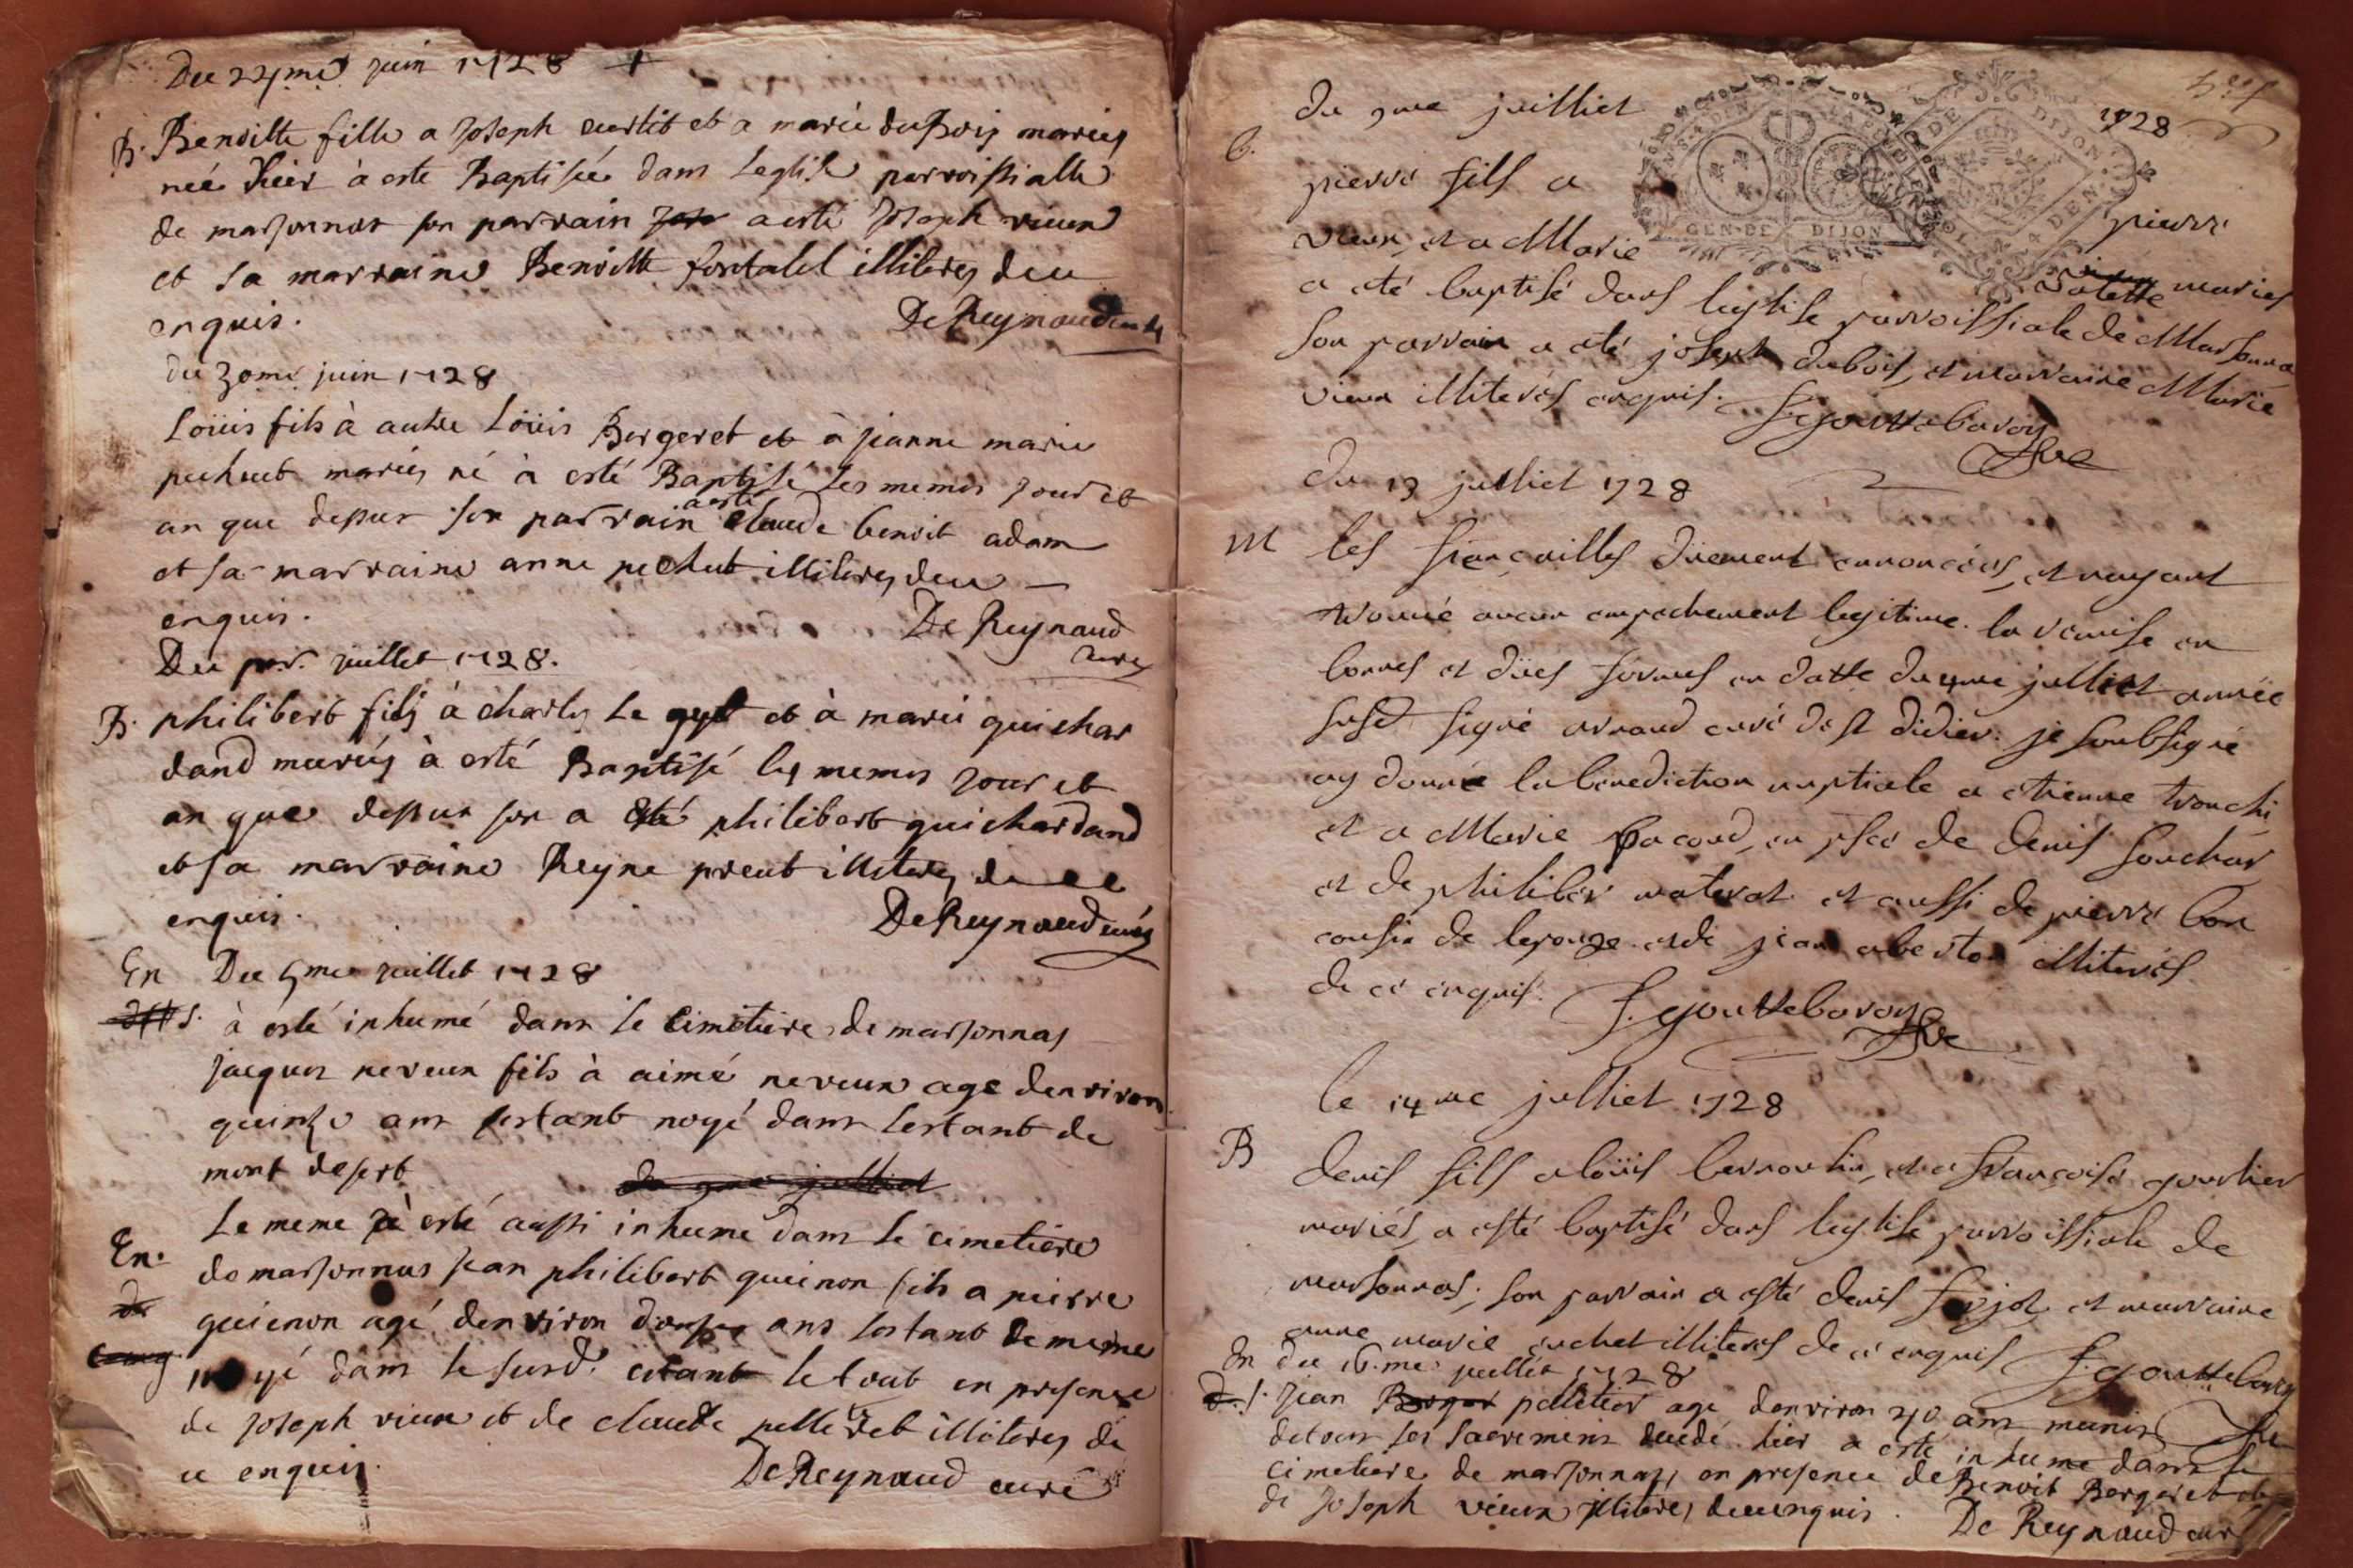 Du 22yme juin 1728
B. Benoitte fille a Joseph curtit et a marie duBois mariez
née hier à esté Baptisée dans Leglise parroissialle
de marsonnas son parrain a esté Joseph vieux
et sa marraine Benoitte illiterez de ce
enquis. De Reynaud curé
du 30me juin 1728
Loüis fils à autre Loüis Bergeret et à jeanne marie
pechut mariez né à esté Baptisé les memes jour et
an que dessus son parrain a esté claude benoit adam
et sa marraine anne pechut illiterez de ce
enquis. De Reynaud
curé
Du per. juillet 1728.
B. philibert fils à charles Le et à marie guichar
dand mariez à esté Baptisé les memes jour et
an que dessus son a esté philibert guichardand
et sa marraine Reyne preut illiterez de ce
enquis. De Reynaud curé
En Du 5me juillet 1728
à esté inhumé dans le Cimetiere de marsonnas
jacques neveux fils à aimé neveux age denviron
quinze ans sestant noyé dans lestant de
mont desert
du 9me julliet
En. Le meme à esté aussi inhumé dans le cimetiere
de marsonnas jean philibert guienon fils a pierre
guienon agé denviron ans sestant de meme
noyé dans le susd. estant le tout en presence
de Joseph vieux et de claude pelleret illiterez de
ce enquis. De Reynaud curé
du 9me juilliet 1728
b. pierre fils a pierre
vieux, et a Marie valette mariés
a eté baptisé dans leglise parroissiale de Marsonna
son parrain a eté joseph dubois, et marraine Marie
vieux illiterés enquis. f. gouttebaroy
du 13 julliet 1728
M les fiançailles düement annoncées, et nayant
trouvé aucun empechement legitime. la remise en
bonnes et dües formes en datte du julliet année
susd signé arnaud curé de st didier. je soubsigné
ay donné la benediction nuptiale a etienne tronchi
et a Marie pacoud, en psce de denis souchar
et de philiber materat et aussi de pierre bon
cousin de lepouze et de jean aberton illiterés
de ce enquis. f. gouttebaroy
le 14me julliet 1728
B denis fils a loüis bernardin, et a françoise gourlier
mariés, a esté baptisé dans leglise parroissiale de
marsonnas; son parrain a esté denis et marraine
anne marie cuchet illiterés de ce enquis f. gouttebaroy
En du 16.me juillet 1728
jean pelletier agé denviron ans munis
de tous ses sacremens decedé hier a esté inhumé dans le
cimetiere de marsonnas, en presence de Benoit Bergeret et
de Joseph vieux illiterez de ce enquis. De Reynaud curé
GEN·DE DIJON